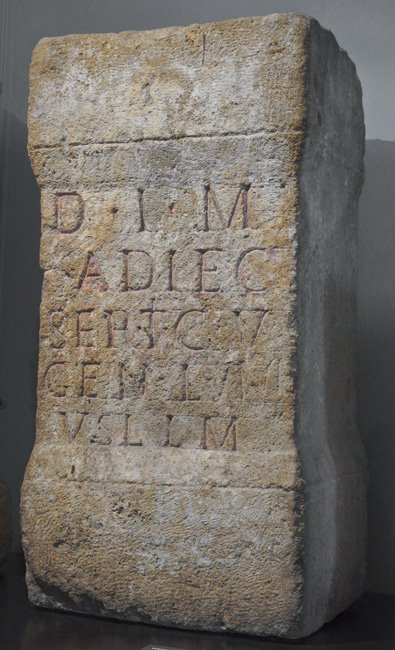 D · I · M
ADLEC
SEPT C V
GEM
VSLLM